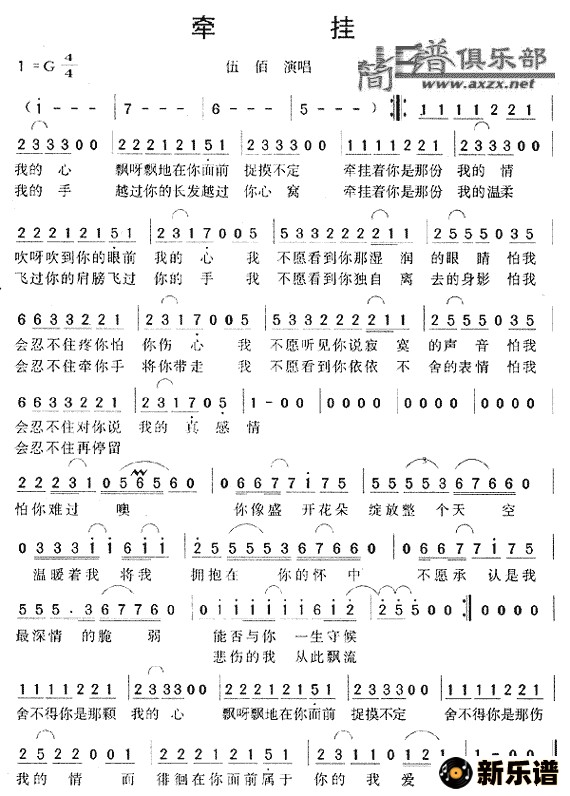 牵 挂
简谱俱乐部
www.axzx.net
1 = G 4/4
伍 佰 演唱
( i - - - | 7 - - - | 6 - - - | 5 - - - ) ‖: 1 1 1 1 2 2 1 |
2 3 3 3 0 0 | 2 2 2 1 2 1 5 1 | 2 3 3 3 0 0 | 1 1 1 1 2 2 1 | 2 3 3 3 0 0 |
我的 心 飘呀飘地在你面前 捉摸不定 牵挂着你是那份 我的 情
我的 手 越过你的长发越过 你心 窝 牵挂着你是那份 我的温柔
2 2 2 1 2 1 5 1 | 2 3 1 7 0 0 5 | 5 3 3 3 2 2 2 1 1 | 2 5 5 5 0 3 5 |
吹呀吹到你的眼前 我的 心 我 不愿看到你那湿 润 的眼 睛 怕我
飞过你的肩膀飞过 你的 手 我 不愿看到你独自 离 去的身影 怕我
6 6 3 3 2 2 1 | 2 3 1 7 0 0 5 | 5 3 3 3 2 2 2 1 1 | 2 5 5 5 0 3 5 |
会忍不住疼你怕 你伤 心 我 不愿听见你说寂 寞 的声 音 怕我
会忍不住牵你手 将你带走 我 不愿看到你依依 不 舍的表情 怕我
6 6 3 3 2 2 1 | 2 3 1 7 0 5 | 1 - 0 0 | 0 0 0 0 | 0 0 0 0 | 0 0 0 0 |
会忍不住对你说 我的 真 感 情
会忍不住再停留
2 2 2 3 1 0 5 6 5 6 0 | 0 6 6 7 7 i 7 5 | 5 5 5 5 3 6 7 6 6 0 |
怕你难过 噢 你像盛 开花朵 绽放整 个天 空
0 3 3 3 i i 6 i i | 2 5 5 5 5 3 6 7 6 6 0 | 0 6 6 7 7 i 7 5 |
温暖着我 将我 拥抱在 你的 怀 中 不愿承 认是我
5 5 5 . 3 6 7 7 6 0 | 0 i i i i i i 6 i 2 | 2 · 5 5 0 0 :‖ 0 0 0 0 |
最深情 的脆 弱 能否与你 一生守候
悲伤的我 从此飘流
1 1 1 1 2 2 1 | 2 3 3 3 0 0 | 2 2 2 1 2 1 5 1 | 2 3 3 3 0 0 | 1 1 1 1 2 2 1 |
舍不得你是那颗 我的 心 飘呀飘地在你面前 捉摸不定 舍不得你是那伤
2 5 2 2 0 0 1 | 2 2 2 1 2 1 2 1 | 2 3 1 1 0 1 2 1
我的 情 而 徘徊在你面前属于 你的 我 爱
新乐谱